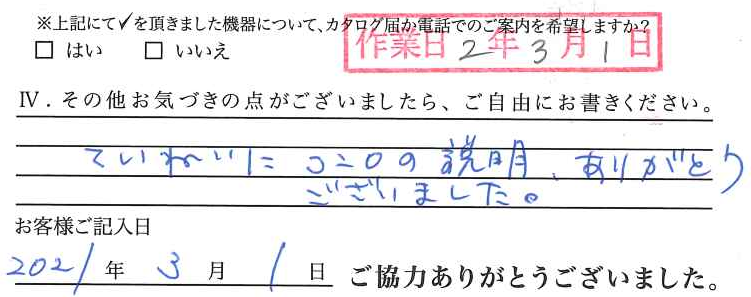 ※上記にて✓を頂きました機器について、カタログ届か電話でのご案内を希望しますか?
□ はい □ いいえ
作業日 2年3月1日
Ⅳ．その他お気づきの点がございましたら、ご自由にお書きください。
ていねいに コンロの 説明、ありがとう
ございました。
お客様ご記入日
2021年 3月 1日 ご協力ありがとうございました。